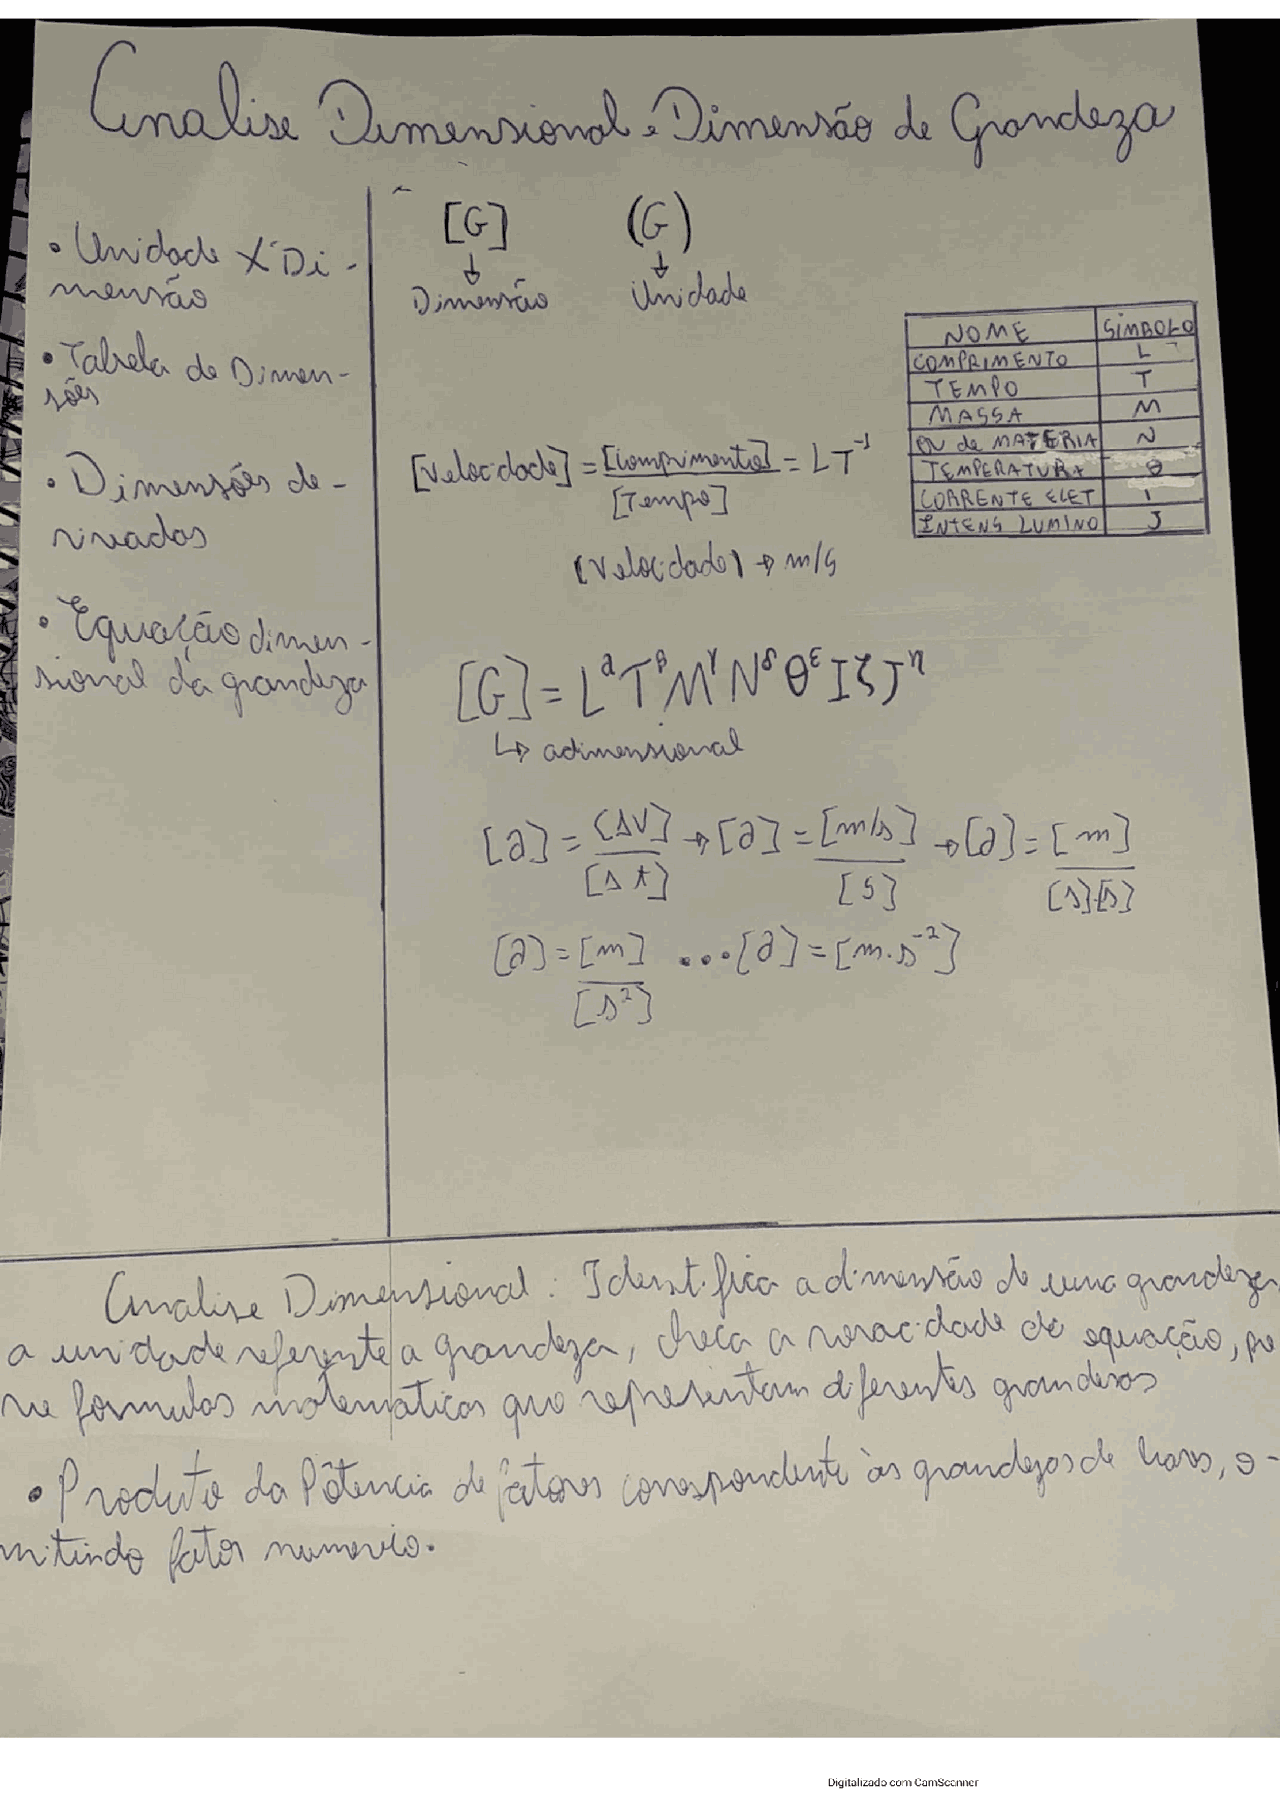 Analise Dimensional e Dimensão de Grandeza
• Unidade X Di-
mensão
• Tabela de Dimen-
sões
• Dimensões de-
rivadas
• Equação dimen-
sional da grandeza
[G] (G)
↓ ↓
Dimensão Unidade
NOME SÍMBOLO
COMPRIMENTO L
TEMPO T
MASSA M
QU de MATERIA N
TEMPERATURA θ
CORRENTE ELET I
INTENS LUMINO J
[Velocidade] = [Comprimento] = LT⁻¹
[Tempo]
(Velocidade) → m/s
[G] = LᵅTᵝMᵞNᵟθᵋIζJᶯ
↳ adimensional
[a] = [ΔV] → [a] = [m/s] → [a] = [m]
[Δt] [s] [s].[s]
[a] = [m] ... [a] = [m.s⁻²]
[s²]
Analise Dimensional: Identifica a dimensão de uma grandeza
a unidade referente a grandeza, checa a veracidade de equação, pre
ve formulas matemáticas que representam diferentes grandezas
• Produto da Pôtencia de fatores correspondente às grandezas de bases, o-
mitindo fator numerio.
Digitalizado com CamScanner